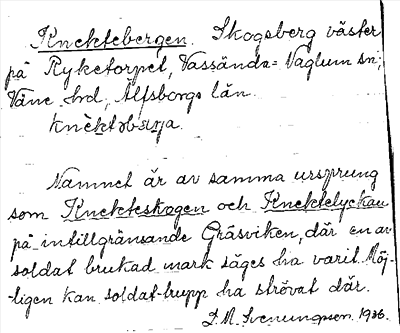 Knektebergen. Skogsberg väster
på Ryketorpet, Vassända-Naglum sn;
Väne hd, Älfsborgs län.
Namnet är av samma ursprung
som Knekteskogen och Knektelyckan
på intillgränsande Gräsviken, där en av
soldat brukad mark säges ha varit. Möj-
-ligen kan soldat-trupp ha strövat där.
L. M. Svenungsson. 1936.